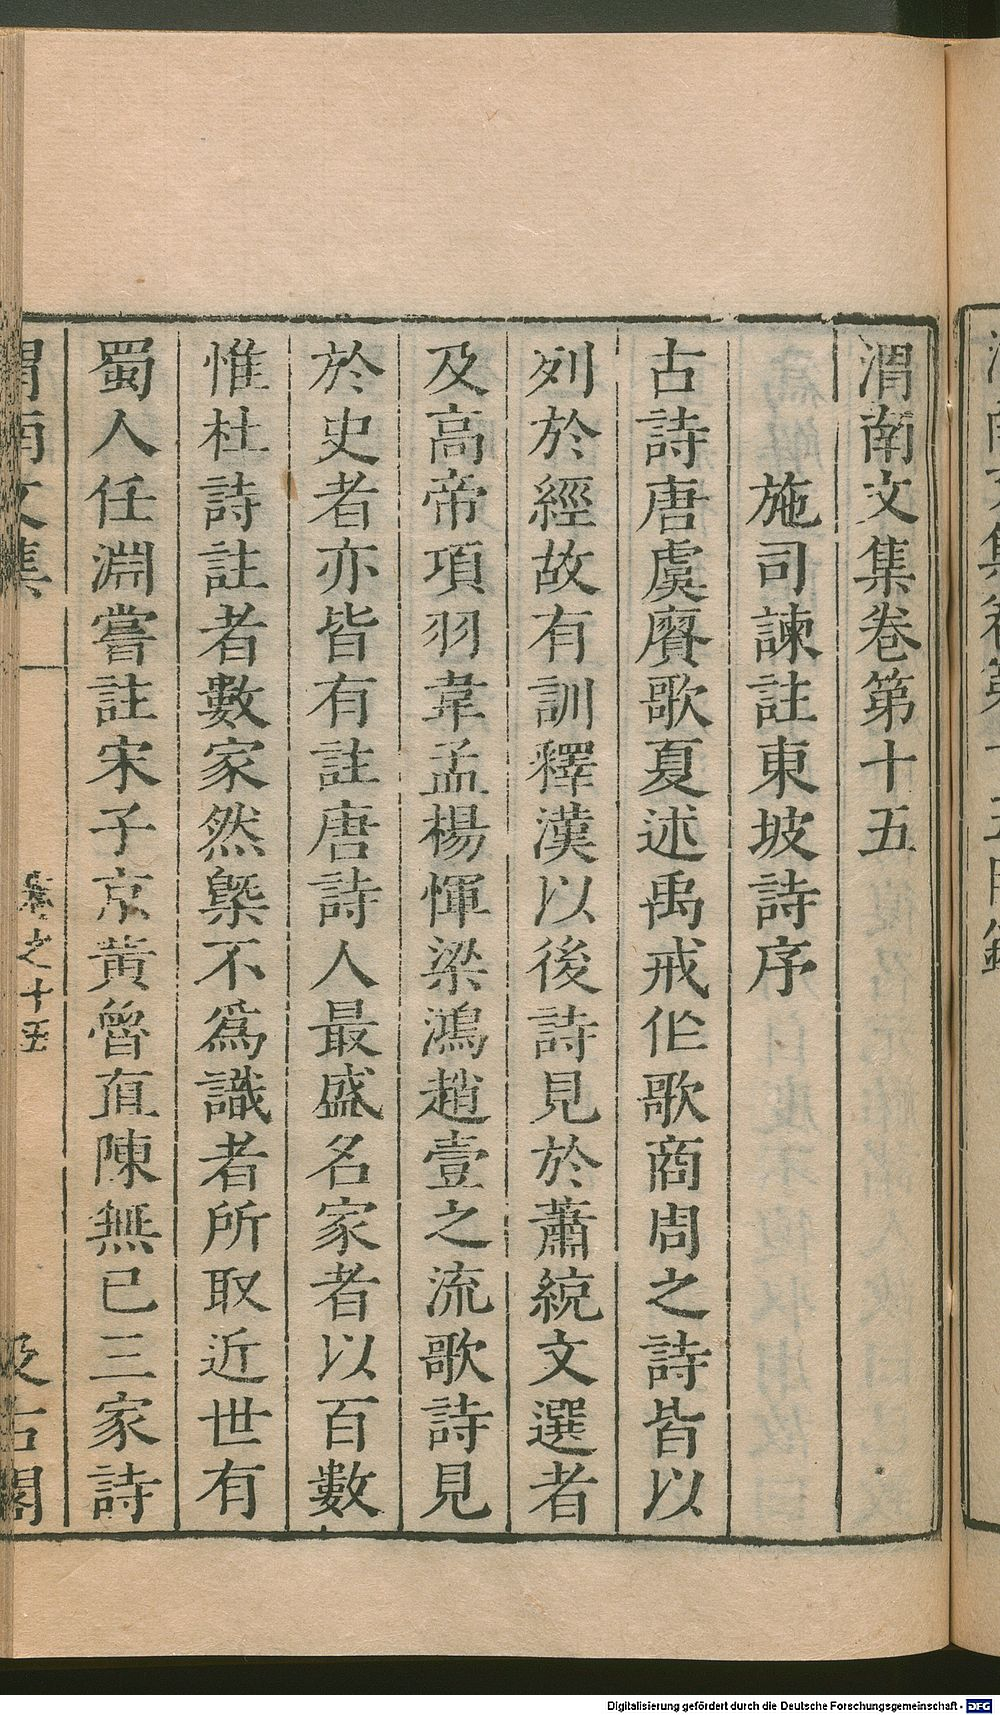 渭南文集卷第十五
施司諫註東坡詩序
古詩唐虞賡歌夏述禹戒作歌商周之詩皆以
列於經故有訓釋漢以後詩見於蕭統文選者
及高帝項羽韋孟楊惲梁鴻趙壹之流歌詩見
於史者亦皆有註唐詩人最盛名家者以百數
惟杜詩註者數家然槩不爲識者所取近世有
蜀人任淵嘗註宋子京黃魯直陳無已三家詩
渭南文集 卷之十五 汲古閣
Digitalisierung gefördert durch die Deutsche Forschungsgemeinschaft - DFG